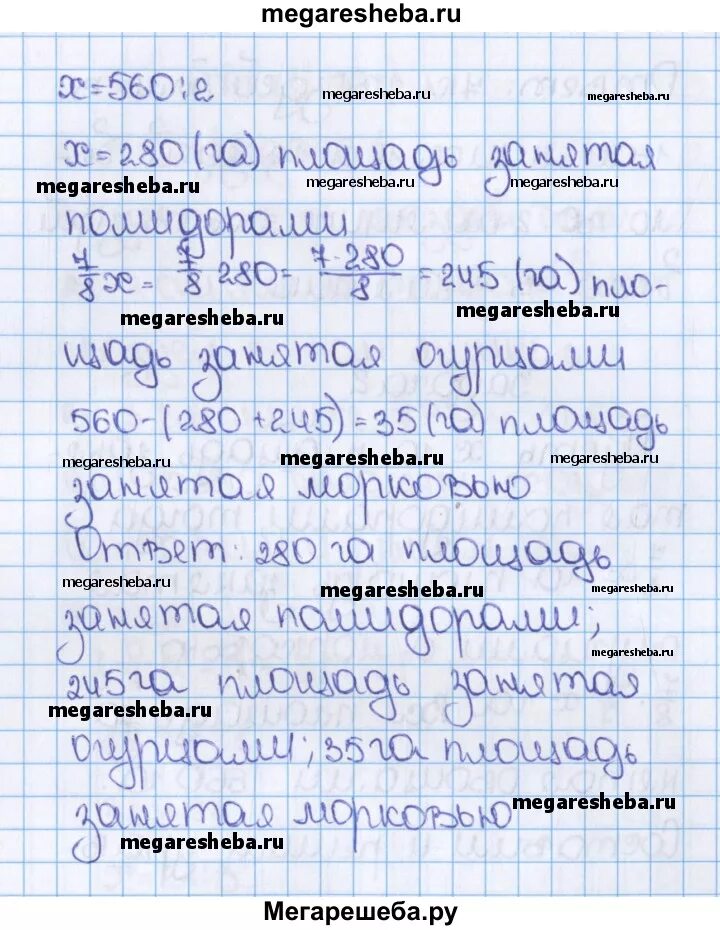 megaresheba.ru
x=560:2
megaresheba.ru megaresheba.ru
x=280(га) площадь занятая
megaresheba.ru megaresheba.ru megaresheba.ru
помидорами
7/8 x = 7/8 · 280 = 7·280/8 = 245 (га) пло-
megaresheba.ru megaresheba.ru
щадь занятая огурцами
560-(280+245)=35(га) площадь
megaresheba.ru megaresheba.ru megaresheba.ru
занятая морковью
Ответ: 280 га площадь
megaresheba.ru megaresheba.ru megaresheba.ru
занятая помидорами;
megaresheba.ru
245 га площадь занятая
megaresheba.ru
огурцами; 35 га площадь
занятая морковью megaresheba.ru
megaresheba.ru megaresheba.ru
Мегарешеба.ру